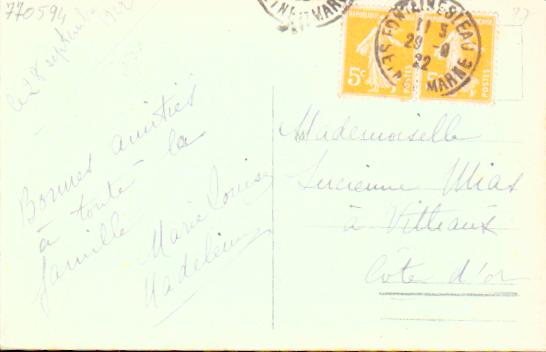 770594
le 28 septembre 1922
Bonnes amitiés
à toute la
famille
Marie Louise
Madeleine
5c 5c
POSTES POSTES
FONTAINES
11 5
29 - 9
22
MARNE
Mademoiselle
Lucienne Mias
à Vitteaux
Côte d'or